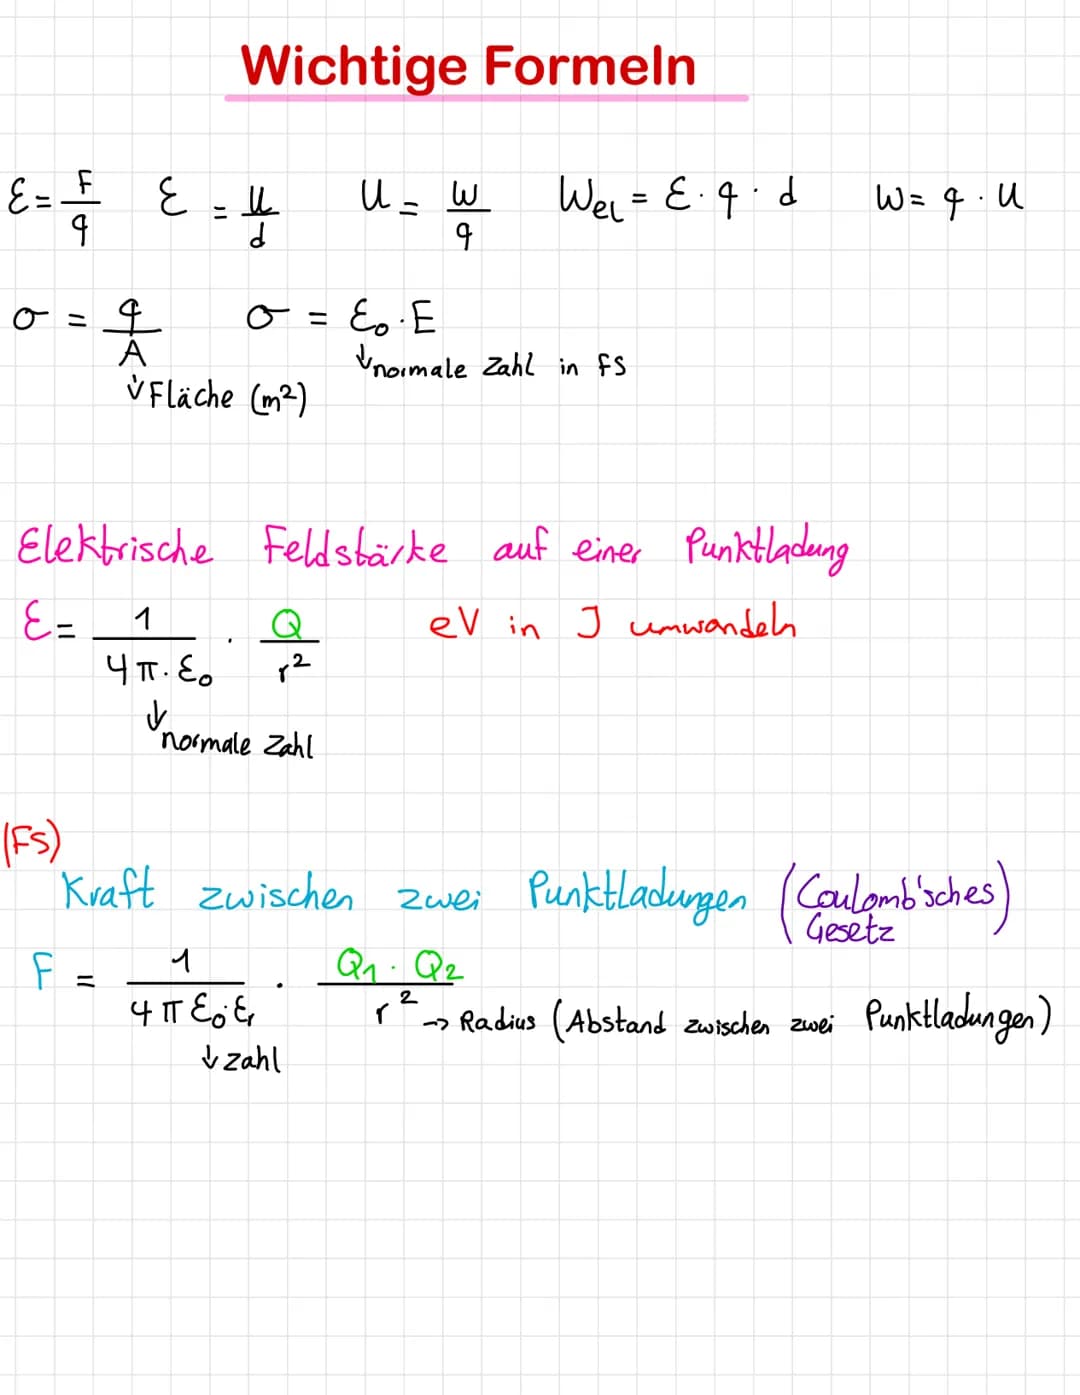 Wichtige Formeln
Ɛ = F/q Ɛ = U/d U = W/q Wel = Ɛ · q · d W = q · U
σ = q/A σ = Ɛ₀ · E
↓ normale Zahl in FS
↓ Fläche (m²)
Elektrische Feldstärke auf einer Punktladung
Ɛ = 1/(4π · Ɛ₀) · Q/r² eV in J umwandeln
↓ normale Zahl
(FS)
Kraft zwischen zwei Punktladungen (Coulomb'sches Gesetz)
F = 1/(4π Ɛ₀ · Ɛr) · Q1 · Q2/r² → Radius (Abstand zwischen zwei Punktladungen)
↓ zahl